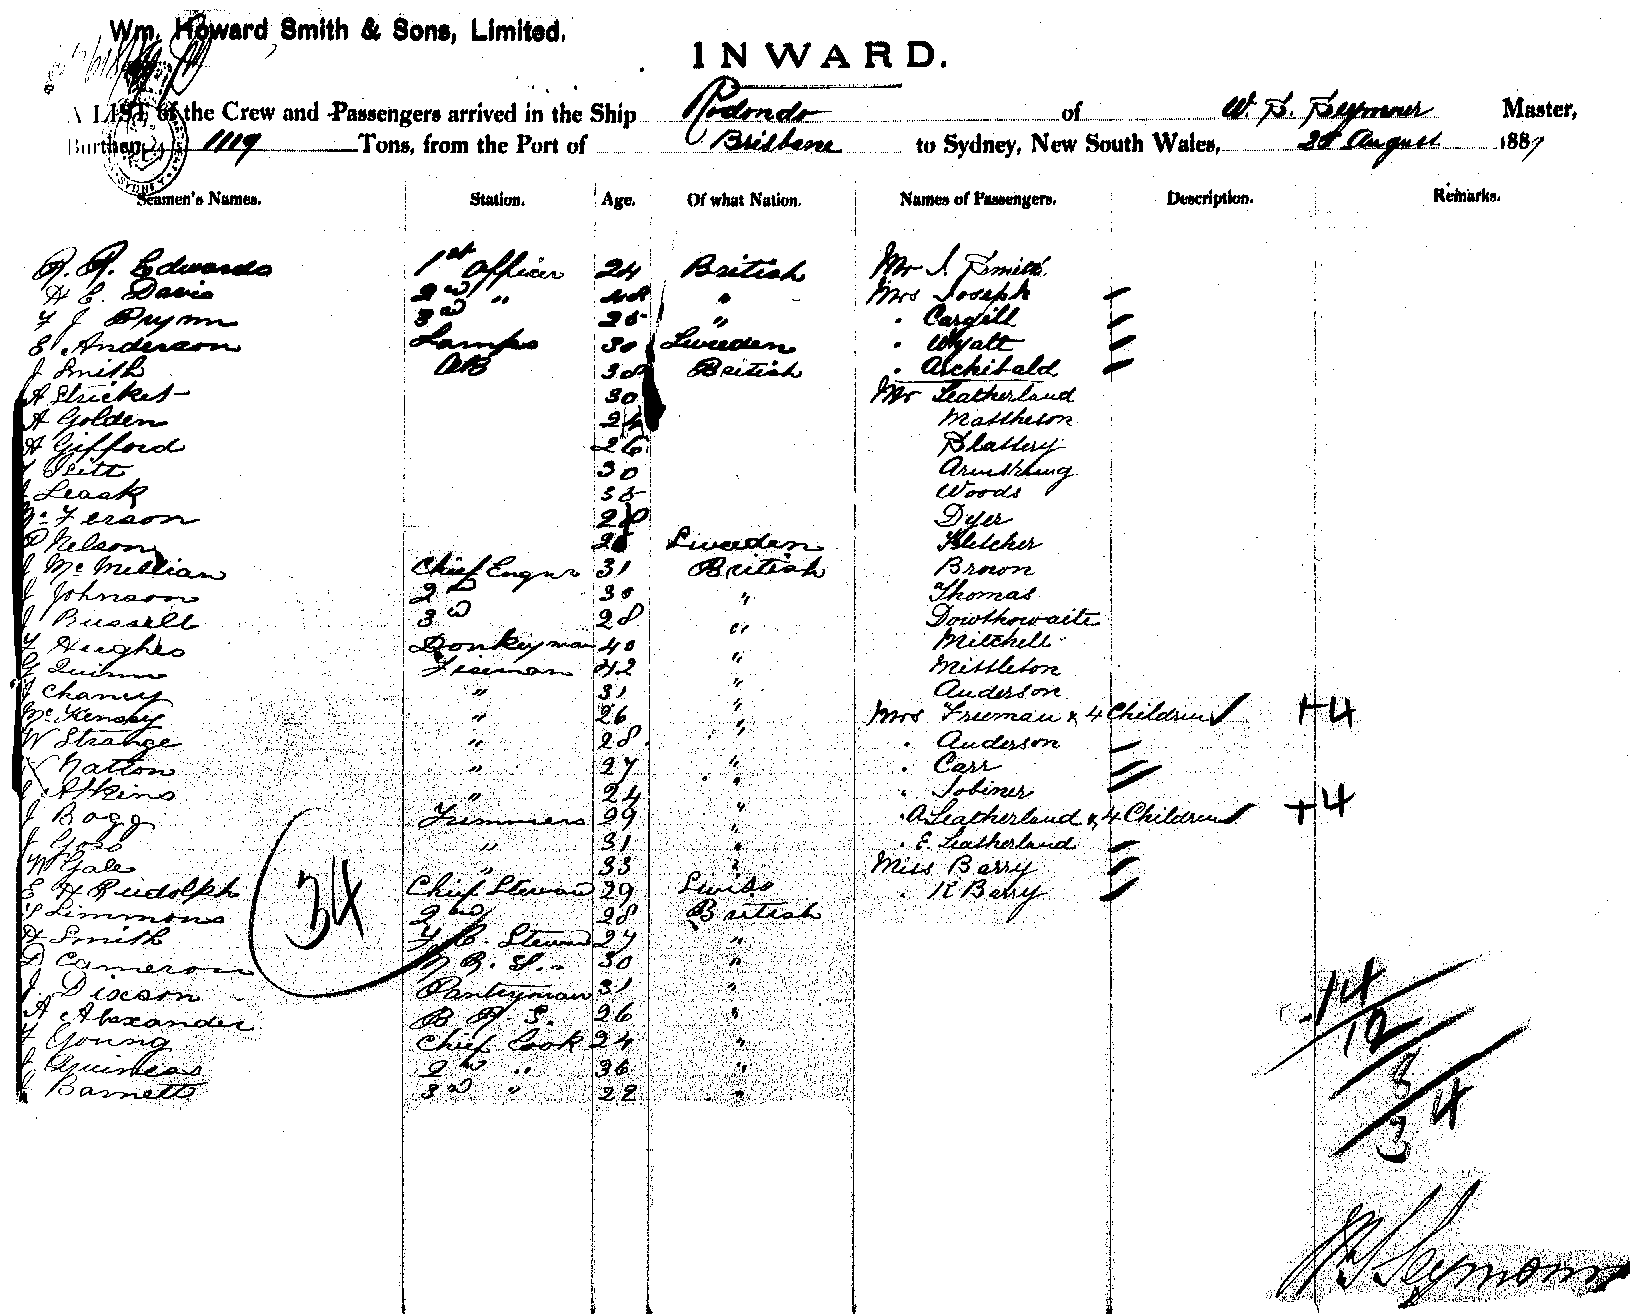 Wm. Howard Smith & Sons, Limited.
INWARD.
A LIST of the Crew and Passengers arrived in the Ship Rodondo of W. S. Seymour Master,
Burthen 1119 Tons, from the Port of Brisbane to Sydney, New South Wales, 28 August 1887
Seamen's Names. Station. Age. Of what Nation. Names of Passengers. Description. Remarks.
R. R. Edwards 1st Officer 24 British Mr J. Smith
H E. Davis 2nd " 48 " Mrs Joseph
F J Prynn 3rd 25 " " Cargill
E. Anderson Lamps 30 Sweden " Wyatt
J Smith AB 38 British " Archibald
A Stricket 30 Mr Leatherland
A Golden 24 Mattheson
A Gifford 26 Slattery
T Pitt 30 Armstrong
J Leask 35 Woods
Ferson 28 Dyer
P Nelson 28 Sweden Fletcher
J McMillian Chief Engnr 31 British Brown
J Johnson 2nd 30 " Thomas
J Bussell 3rd 28 " Dowthowaite
F Hughes Donkeyman 40 Mitchell
G Quinn Fireman 42 " Mittleton
J Chaney " 31 " Anderson
McKensey " 26 " Mrs Freeman & 4 Children +4
W Strange " 28 " " Anderson
Natton " 27 " " Carr
J Atkins " 24 " " Tobiner
J Bagg Trimmers 29 " " A. Leatherland & 4 Children +4
J Goss " 31 " " E. Leatherland
W Gale " 33 " Miss Barry
E H Rudolph Chief Steward 29 Swiss " K Barry
S Simmons 2nd 28 British
H Smith F. C. Steward 27 "
D Cameron 30 "
J. Dixson Pantryman 31 "
A Alexander B. R. S. 26 "
F Young Chief Cook 24 "
J Guineas 2nd " 36 "
J Barnett 3rd " 22 "
34
14
12
8
34
W S Seymour